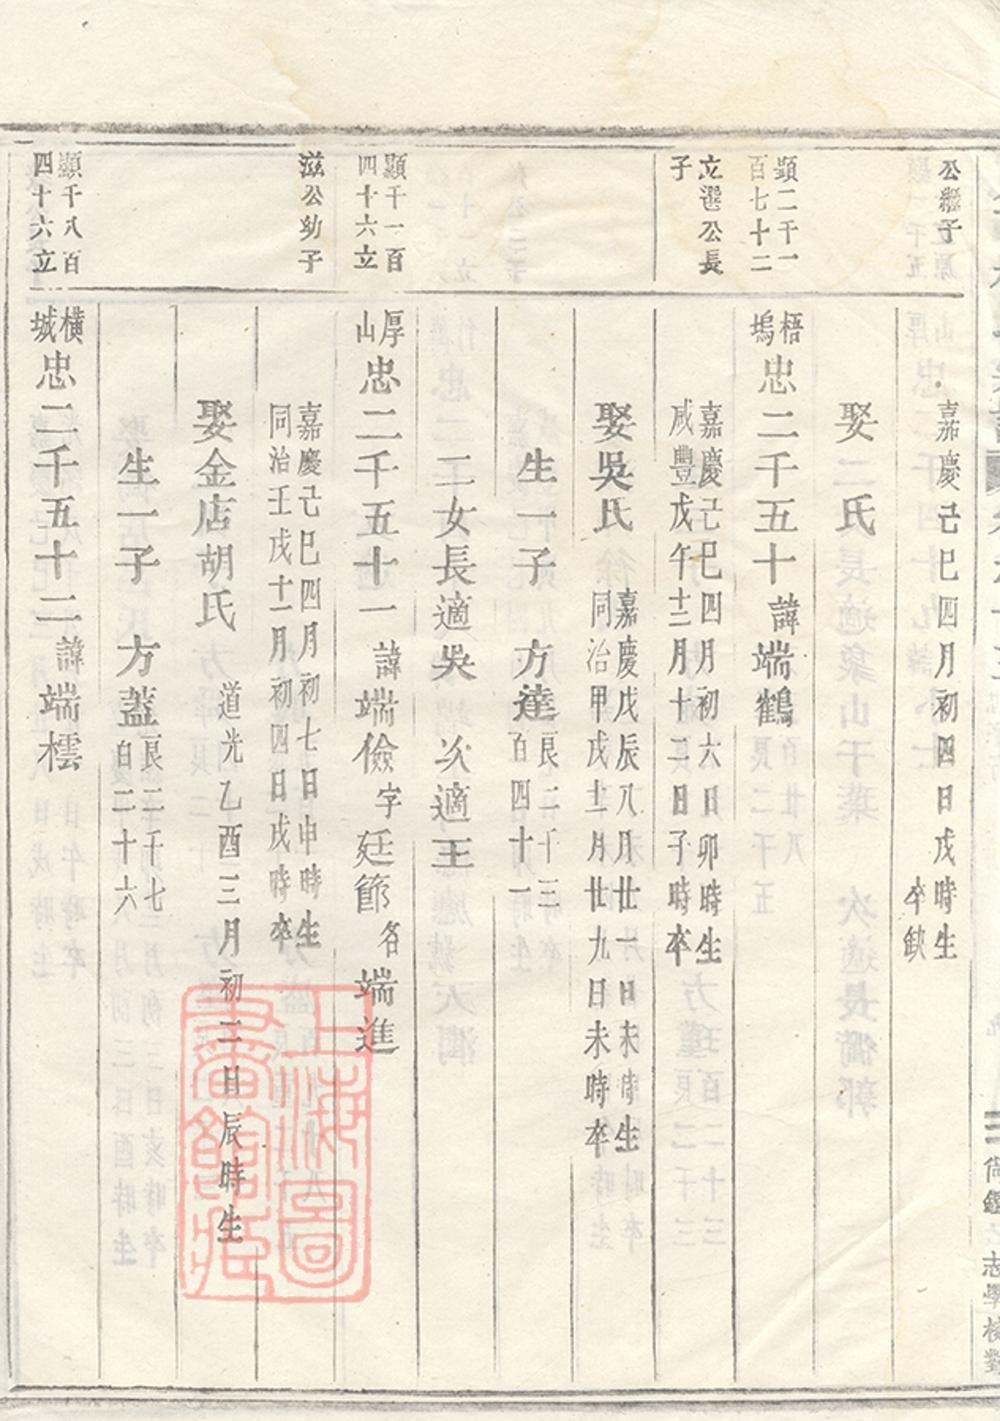 公繼子
嘉慶己巳四月初四日戌時生
卒缺
娶 氏
顯二千一
百七十二
梧
塢
忠二千五十諱端鶴
立選公長
子
嘉慶己巳四月初六日卯時生
咸豐戊午十二月十二日子時卒
娶吳氏
嘉慶戊辰八月廿一日未時生
同治甲戌十一月廿九日未時卒
生一子 方達
良二千三
百四十一
二女長適吳 次適王
顯千一百
四十六立
厚
山
忠二千五十一諱端儉字廷節名端進
滋公幼子
嘉慶己巳四月初七日申時生
同治壬戌十一月初四日戌時卒
娶金店胡氏
道光乙酉三月初二日辰時生
生一子 方蓋
良二千七
百二十六
顯千八百
四十六立
橫
城
忠二千五十二諱端橒
志學校對
上海圖
書館藏